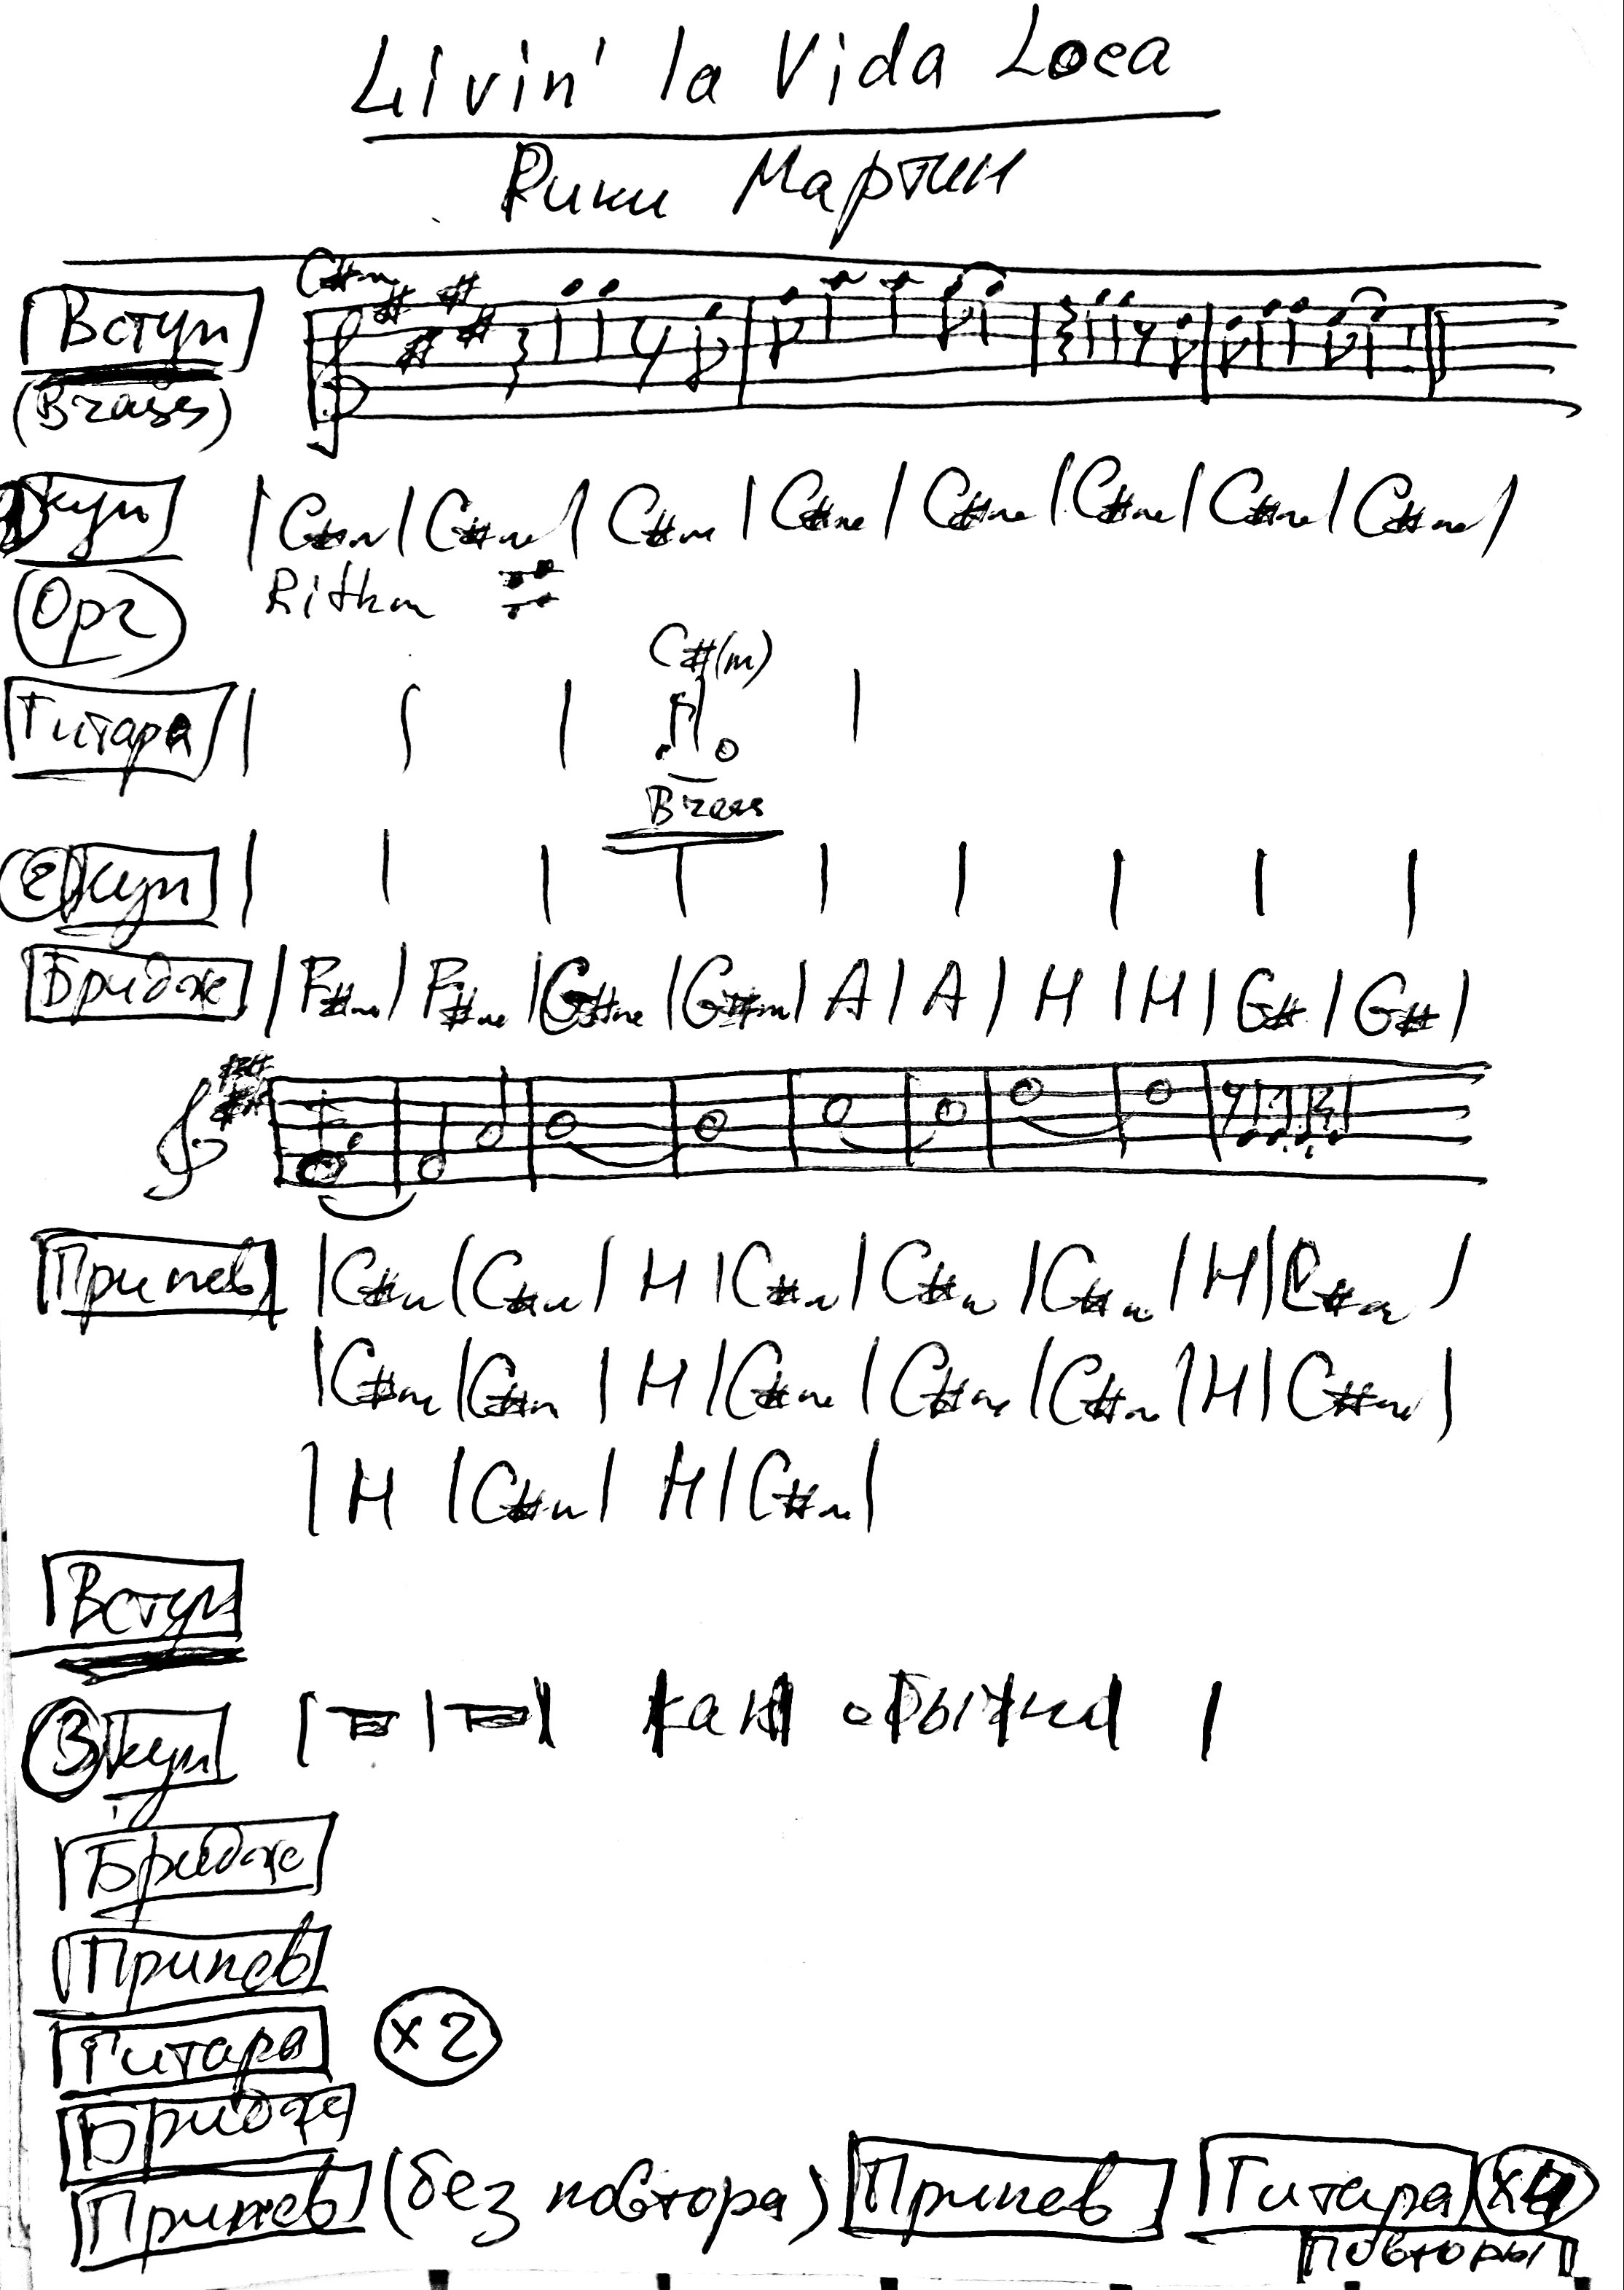 Livin' la Vida Loca
Рики Мартин
C#m
Вступ
(Brass)
куп | C#m | C#m | C#m | C#m | C#m | C#m | C#m | C#m |
Орг Rithm
C#(m)
Гитара | | | |
Brass
2 куп | | | | | | | | |
Бридж | F#m | F#m | G#m | G#m | A | A | H | H | G# | G# |
Припев | C#m | C#m | H | C#m | C#m | C#m | H | C#m |
| C#m | C#m | H | C#m | C#m | C#m | H | C#m |
| H | C#m | H | C#m |
Вступ
3 куп | | | как обычно |
Бридж
Припев
Гитара x2
Бридж
Припев (без повтора) Припев Гитара x4
Повторы